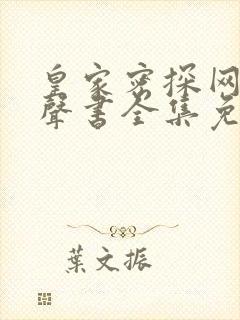 皇家密探网
聲書全集免
葉文振